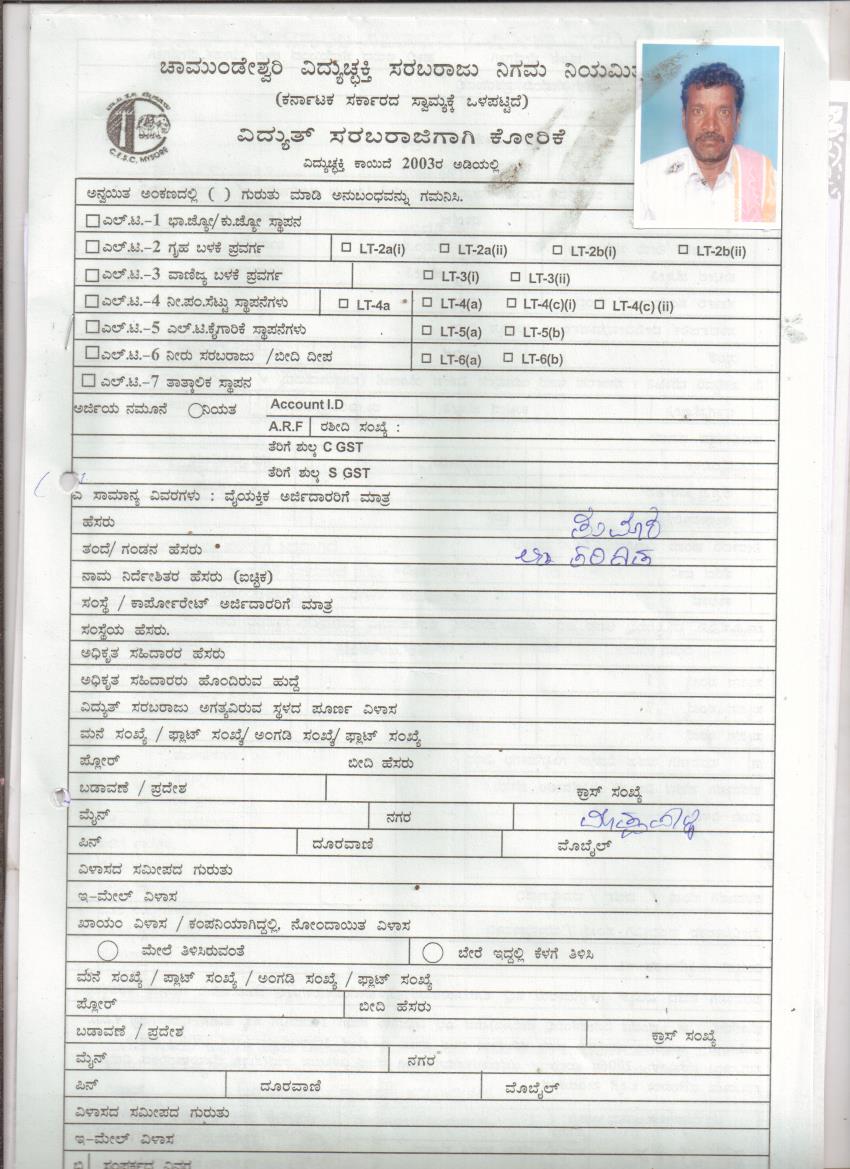 ಚಾಮುಂಡೇಶ್ವರಿ ವಿದ್ಯುಚ್ಛಕ್ತಿ ಸರಬರಾಜು ನಿಗಮ ನಿಯಮಿತ
(ಕರ್ನಾಟಕ ಸರ್ಕಾರದ ಸ್ವಾಮ್ಯಕ್ಕೆ ಒಳಪಟ್ಟಿದೆ)
C.E.S.C, MYSORE
ವಿದ್ಯುತ್ ಸರಬರಾಜಿಗಾಗಿ ಕೋರಿಕೆ
ವಿದ್ಯುಚ್ಛಕ್ತಿ ಕಾಯಿದೆ 2003ರ ಅಡಿಯಲ್ಲಿ
ಅನ್ವಯಿತ ಅಂಕಣದಲ್ಲಿ ( ) ಗುರುತು ಮಾಡಿ ಅನುಬಂಧವನ್ನು ಗಮನಿಸಿ.
ಎಲ್.ಟಿ.-1 ಭಾ.ಜ್ಯೋ/ಕು.ಜ್ಯೋ ಸ್ಥಾಪನ
ಎಲ್.ಟಿ.-2 ಗೃಹ ಬಳಕೆ ಪ್ರವರ್ಗ LT-2a(i) LT-2a(ii) LT-2b(i) LT-2b(ii)
ಎಲ್.ಟಿ.-3 ವಾಣಿಜ್ಯ ಬಳಕೆ ಪ್ರವರ್ಗ LT-3(i) LT-3(ii)
ಎಲ್.ಟಿ.-4 ನೀ.ಪಂ.ಸೆಟ್ಟು ಸ್ಥಾಪನೆಗಳು LT-4a LT-4(a) LT-4(c)(i) LT-4(c) (ii)
ಎಲ್.ಟಿ.-5 ಎಲ್.ಟಿ.ಕೈಗಾರಿಕೆ ಸ್ಥಾಪನೆಗಳು LT-5(a) LT-5(b)
ಎಲ್.ಟಿ.-6 ನೀರು ಸರಬರಾಜು /ಬೀದಿ ದೀಪ LT-6(a) LT-6(b)
ಎಲ್.ಟಿ.-7 ತಾತ್ಕಾಲಿಕ ಸ್ಥಾಪನ
ಅರ್ಜಿಯ ನಮೂನೆ ನಿಯತ Account I.D
A.R.F ರಶೀದಿ ಸಂಖ್ಯೆ :
ತೆರಿಗೆ ಶುಲ್ಕ C GST
ತೆರಿಗೆ ಶುಲ್ಕ S GST
ಎ ಸಾಮಾನ್ಯ ವಿವರಗಳು : ವೈಯಕ್ತಿಕ ಅರ್ಜಿದಾರರಿಗೆ ಮಾತ್ರ
ಹೆಸರು
ತಂದೆ/ ಗಂಡನ ಹೆಸರು
ನಾಮ ನಿರ್ದೇಶಿತರ ಹೆಸರು (ಐಚ್ಛಿಕ)
ಸಂಸ್ಥೆ / ಕಾರ್ಪೋರೇಟ್ ಅರ್ಜಿದಾರರಿಗೆ ಮಾತ್ರ
ಸಂಸ್ಥೆಯ ಹೆಸರು.
ಅಧಿಕೃತ ಸಹಿದಾರರ ಹೆಸರು
ಅಧಿಕೃತ ಸಹಿದಾರರು ಹೊಂದಿರುವ ಹುದ್ದೆ
ವಿದ್ಯುತ್ ಸರಬರಾಜು ಅಗತ್ಯವಿರುವ ಸ್ಥಳದ ಪೂರ್ಣ ವಿಳಾಸ
ಮನೆ ಸಂಖ್ಯೆ / ಫ್ಲಾಟ್ ಸಂಖ್ಯೆ/ ಅಂಗಡಿ ಸಂಖ್ಯೆ/ ಫ್ಲಾಟ್ ಸಂಖ್ಯೆ
ಫ್ಲೋರ್ ಬೀದಿ ಹೆಸರು
ಬಡಾವಣೆ / ಪ್ರದೇಶ ಕ್ರಾಸ್ ಸಂಖ್ಯೆ
ಮೈನ್ ನಗರ
ಪಿನ್ ದೂರವಾಣಿ ಮೊಬೈಲ್
ವಿಳಾಸದ ಸಮೀಪದ ಗುರುತು
ಇ-ಮೇಲ್ ವಿಳಾಸ
ಖಾಯಂ ವಿಳಾಸ / ಕಂಪನಿಯಾಗಿದ್ದಲ್ಲಿ, ನೋಂದಾಯಿತ ವಿಳಾಸ
ಮೇಲೆ ತಿಳಿಸಿರುವಂತೆ ಬೇರೆ ಇದ್ದಲ್ಲಿ ಕೆಳಗೆ ತಿಳಿಸಿ
ಮನೆ ಸಂಖ್ಯೆ / ಪ್ಲಾಟ್ ಸಂಖ್ಯೆ / ಅಂಗಡಿ ಸಂಖ್ಯೆ / ಫ್ಲಾಟ್ ಸಂಖ್ಯೆ
ಫ್ಲೋರ್ ಬೀದಿ ಹೆಸರು
ಬಡಾವಣೆ / ಪ್ರದೇಶ ಕ್ರಾಸ್ ಸಂಖ್ಯೆ
ಮೈನ್ ನಗರ
ಪಿನ್ ದೂರವಾಣಿ ಮೊಬೈಲ್
ವಿಳಾಸದ ಸಮೀಪದ ಗುರುತು
ಇ-ಮೇಲ್ ವಿಳಾಸ